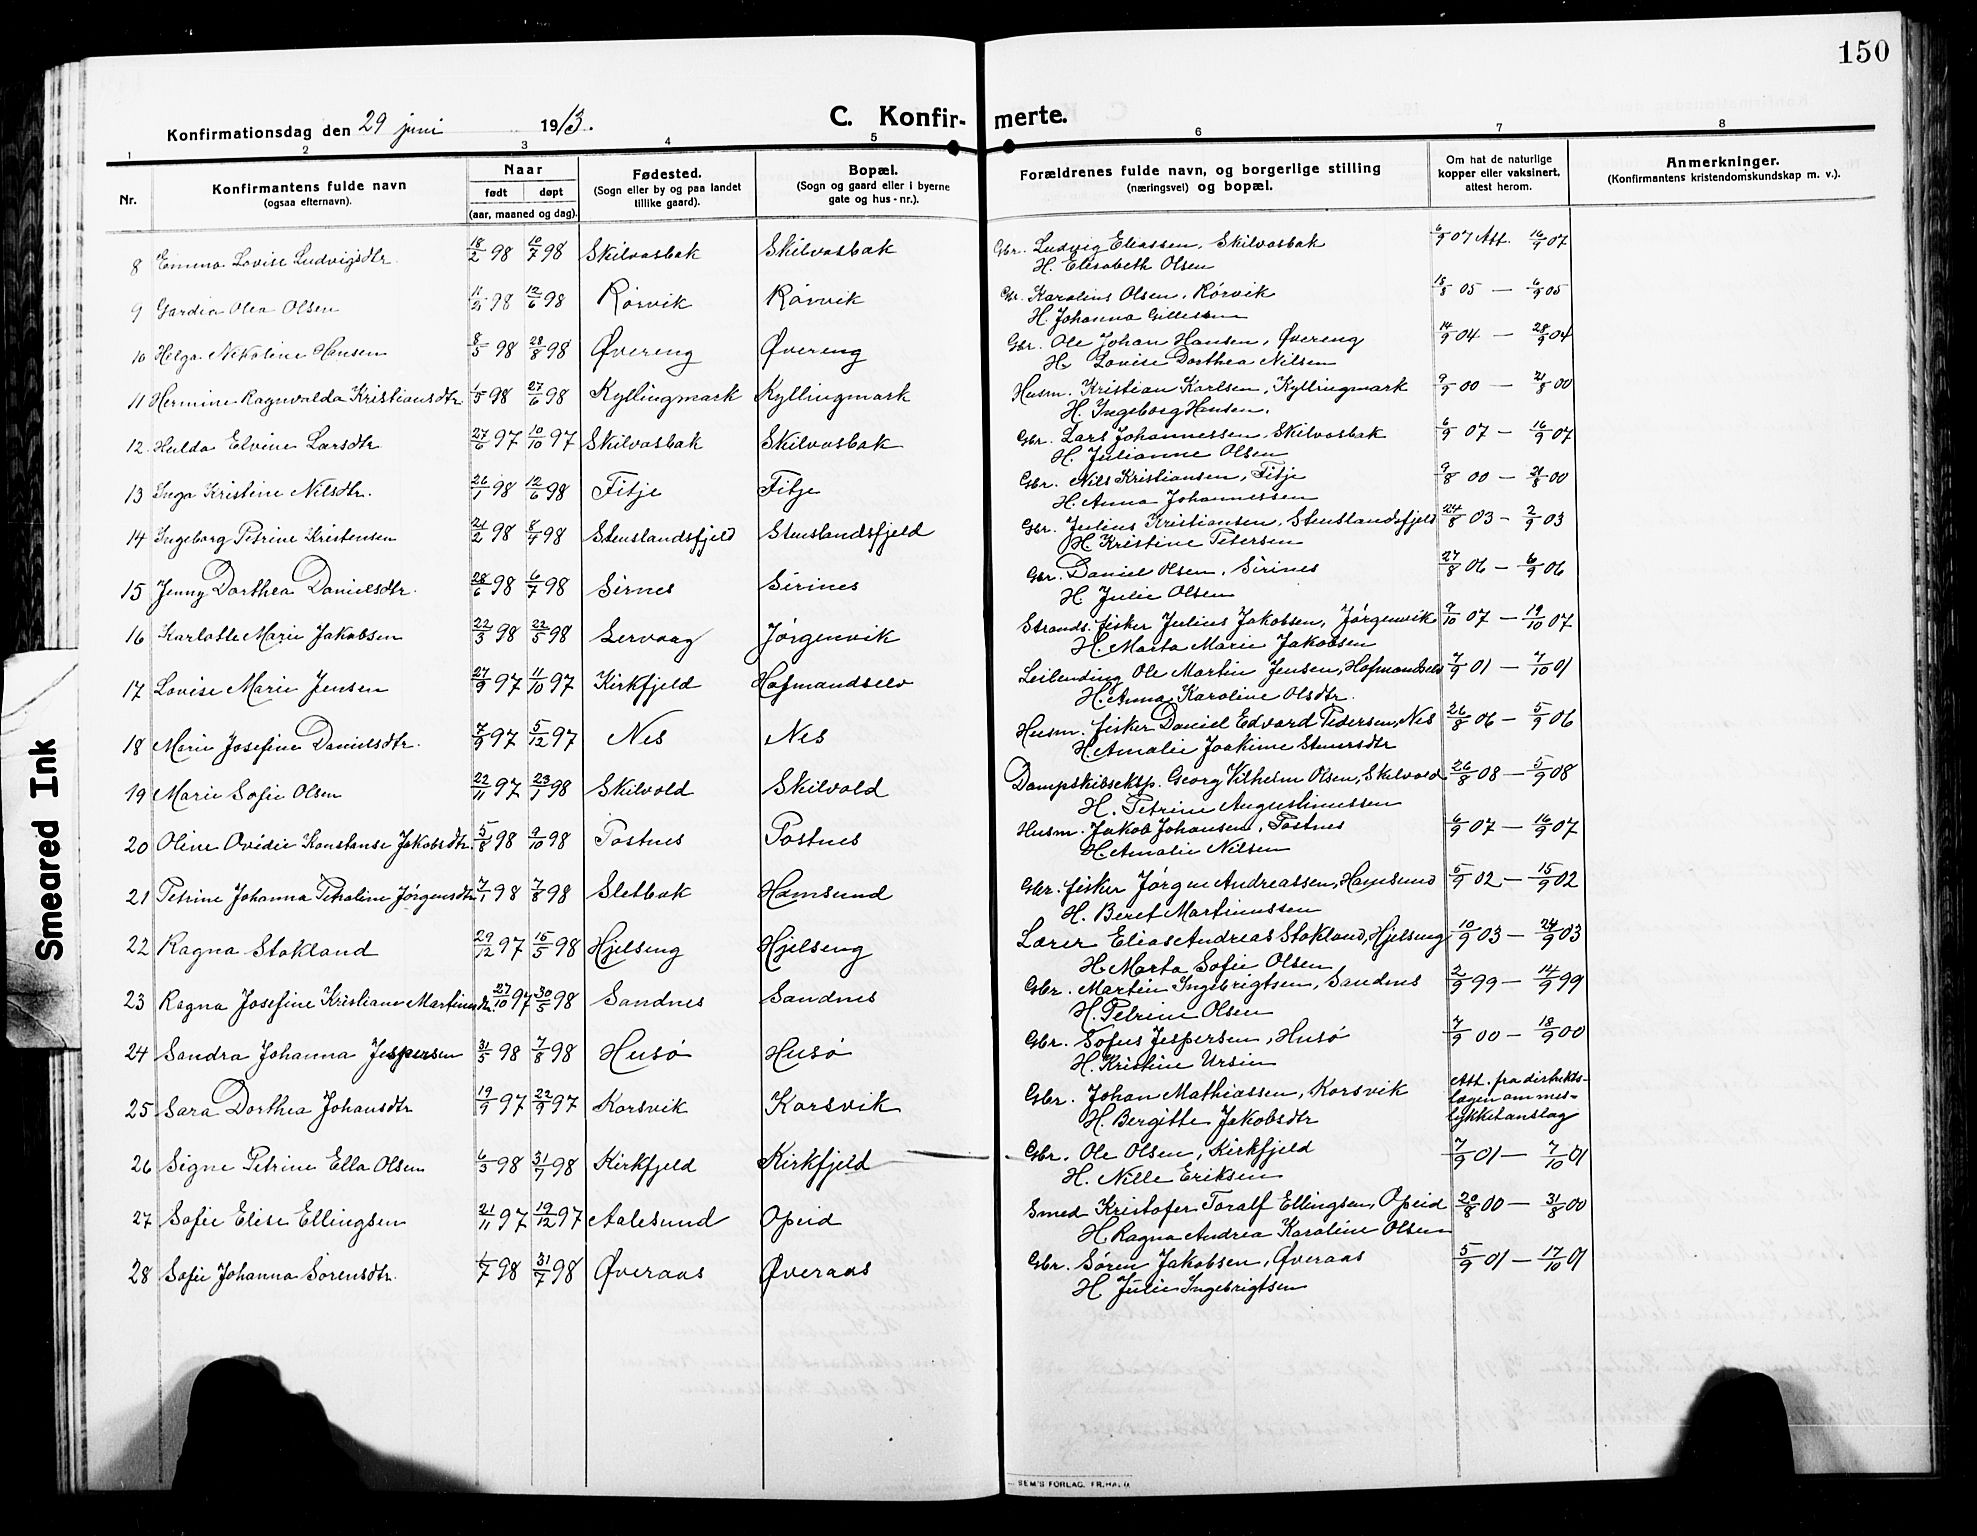 150
Konfirmationsdag den 29 juni 1913.
C. Konfir- merte.
1 2 3 4 5 6 7 8
Nr. Konfirmantens fulde navn (ogsaa efternavn). Naar født døpt (aar, maaned og dag). Fødested. (Sogn eller by og paa landet tillike gaard). Bopæl. (Sogn og gaard eller i byerne gate og hus-nr.). Forældrenes fulde navn, og borgerlige stilling (næringsvei) og bopæl. Om hat de naturlige kopper eller vaksinert, attest herom. Anmerkninger. (Konfirmantens kristendomskundskap m. v.).
8 Emma Lovise Ludvigsdtr. 18/2 98 10/7 98 Skilvasbak Skilvasbak Gbr. Ludvig Eliassen, Skilvasbak 6/9 07 Att. 16/9 07
H. Elisabeth Olsen
9 Gardia Olea Olsen 11/2 98 12/6 98 Rørvik Rørvik Gbr. Karolius Olsen, Rørvik 15/8 05 — 6/9 05
H. Johanna Gillessen
10 Helga Nikoline Hansen 8/5 98 28/8 98 Øvereng Øvereng Gbr. Ole Johan Hansen, Øvereng 14/9 04 — 28/9 04
H. Lovise Dorthea Nilsen
11 Hermine Ragnvalda Kristiansdtr. 1/5 98 27/6 98 Kyllingmark Kyllingmark Husm. Kristian Karlsen, Kyllingmark 9/9 00 — 21/8 00
H. Ingeborg Hansen.
12. Hulda Elvine Larsdtr 27/6 97 10/10 97 Skilvasbak Skilvasbak Gbr. Lars Johannessen, Skilvasbak 6/9 07 — 16/9 07
H. Julianne Olsen
13 Inga Kristine Nilsdtr. 26/1 98 12/6 98 Fitje Fitje Gbr. Nils Kristiansen, Fitje 9/8 00 — 21/8 00
H. Anna Johannessen
14 Ingeborg Petrine Kristensen 21/2 98 8/4 98 Stenslandsfjeld Stenslandsfjeld Gbr. Julius Kristiansen, Stenslandsfjeld 24/8 03 — 2/9 03
H. Kristine Petersen
15 Jenny Dorthea Danielsdtr. 28/6 98 6/7 98 Sirnes Sirines Gbr. Daniel Olsen, Sirines 27/8 06 — 6/9 06
H. Julie Olsen
16 Karlotte Marie Jakobsen 22/3 98 22/5 98 Lervaag Jørgenvik Strands. fisker Julius Jakobsen, Jørgenvik 9/10 07 — 19/10 07
H. Marta Marie Jakobsen
17 Lovise Marie Jensen 27/9 97 11/10 97 Kirkfjeld Hofmandselv Leilending Ole Martin Jensen, Hofmandselv 7/9 01 — 7/10 01
H. Anna Karoline Olsdtr.
18 Marie Josefine Danielsdtr. 7/9 97 5/12 97 Nes Nes Husm. fisker Daniel Edvard Pedersen, Nes 26/8 06 — 5/9 06
H. Amalie Joakime
19 Marie Sofie Olsen 22/11 97 23/1 98 Skilvold Skilvold Dampskibseksp. Georg Vilhelm Olsen, Skilvold 26/8 08 — 5/9 08
H. Petrine Augustinussen
20 Oline Ovidie Konstanse Jakobsdtr. 5/8 98 9/10 98 Tostnes Tostnes Husm. Jakob Johansen, Tostnes 6/9 07 — 16/9 07
H. Amalie Nilsen
21 Petrine Johanna Petraline Jørgensdtr. 7/1 98 7/8 98 Sletbak Hamsund Gbr. fisker Jørgen Andreassen, Hamsund 5/9 02 — 15/9 02
H. Beret Martinussen
22 Ragna Stokland 29/12 97 15/5 98 Hjelseng Hjelseng Lærer Elias Andreas Stokland, Hjelseng 10/9 03 — 24/9 03
H. Marta Sofie Olsen
23 Ragna Josefine Kristiane Martinusdtr. 27/10 97 30/5 98 Sandnes Sandnes Gbr. Martin Ingebrigtsen, Sandnes 2/9 99 — 14/9 99
H. Petrine Olsen
24 Sandra Johanna Jespersen 31/5 98 7/8 98 Husø Husø Gbr. Sofus Jespersen, Husø 7/9 00 — 18/9 00
H. Kristine Ursin
25 Sara Dorthea Johansdtr 19/9 97 22/9 97 Korsvik Korsvik Gbr. Johan Mathiassen, Korsvik Att. fra distrikts-
lægen om mis-
H. Bergitte Jakobsdtr lykket anslag
26 Signe Petrine Ella Olsen 6/3 98 31/7 98 Kirkfjeld Kirkfjeld Gbr. Ole Olsen, Kirkfjeld 7/9 01 — 7/10 01
H. Nille Eriksen
27 Sofie Elise Ellingsen 21/11 97 19/12 97 Aalesund Opeid Smed Kristofer Toralf Ellingsen, Opeid 20/8 00 — 31/8 00
H. Ragna Andrea Karoline Olsen
28 Sofie Johanna Sørensdtr. 1/7 98 31/7 98 Øveraas Øveraas Gbr. Søren Jakobsen, Øveraas 5/9 01 — 17/10 01
H. Julie Ingebrigtsen
SEM'S FORLAG, FR.HALD
Smeared Ink